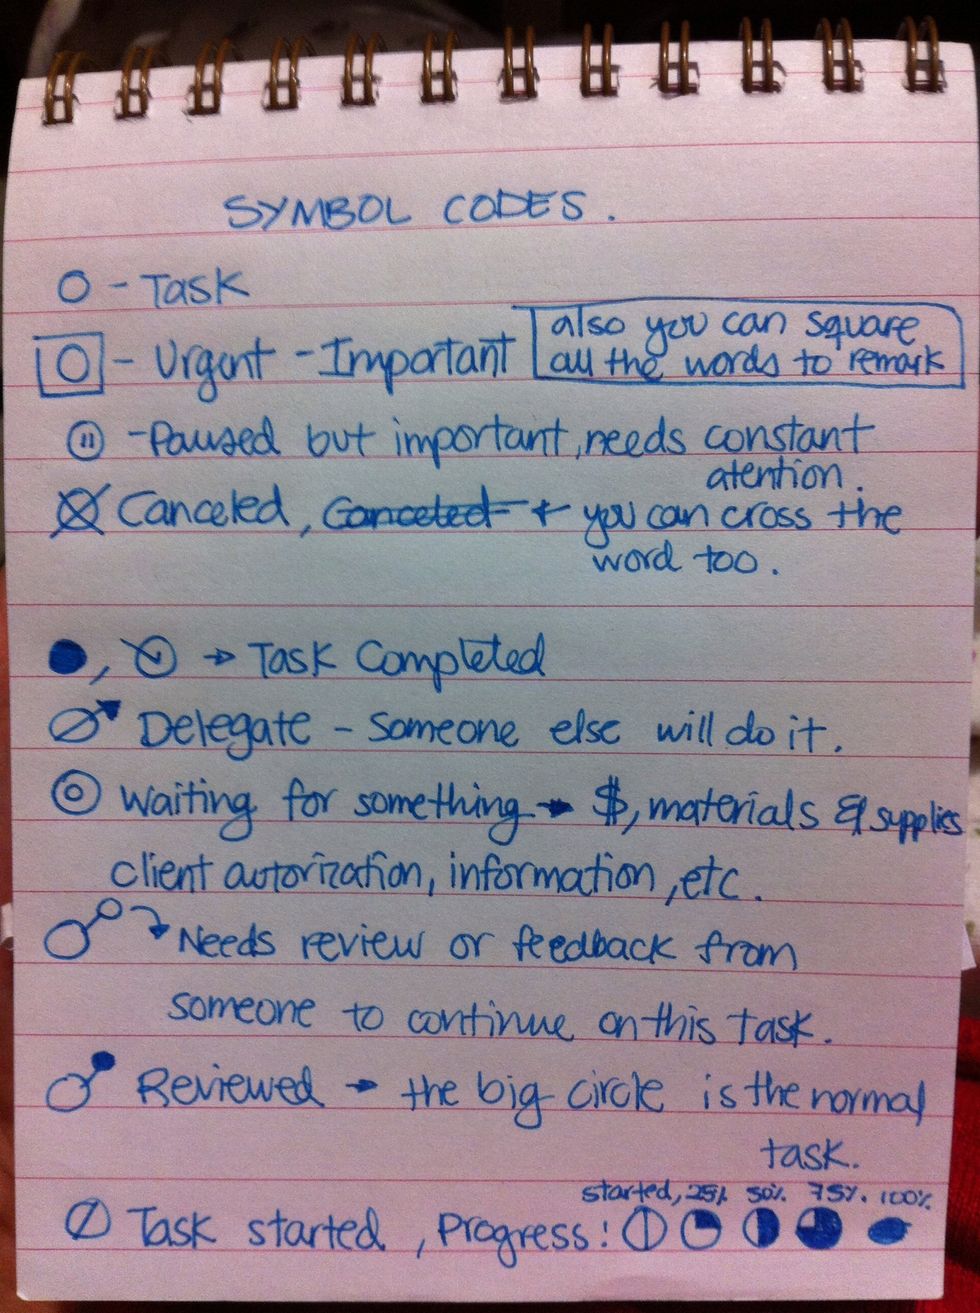 SYMBOL CODES.
O - Task
O - Urgent - Important also you can square
all the words to remark
- Paused but important, needs constant
atention.
Canceled, Canceled + you can cross the
word too.
, → Task Completed
Delegate - Someone else will do it.
Waiting for something → $, materials & supplies
client autorization, information, etc.
Needs review or feedback from
someone to continue on this task.
Reviewed → the big circle is the normal
task.
started, 25% 50% 75% 100%
Task started, Progress: